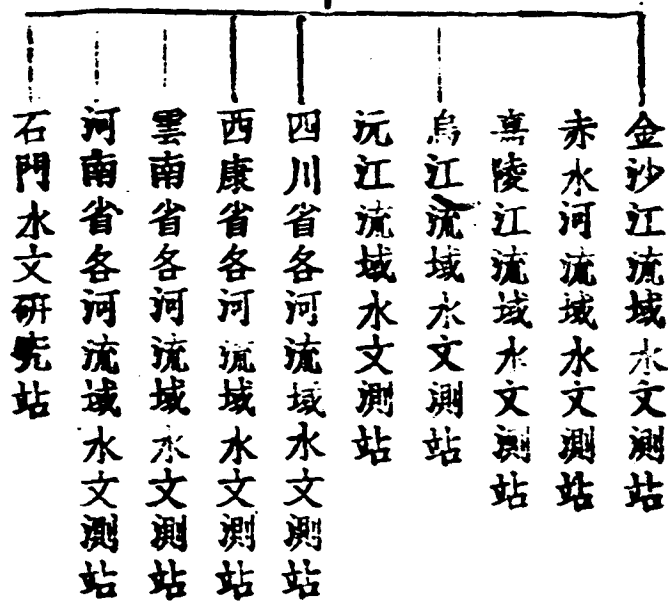 金沙江流域水文測站
赤水河流域水文測站
嘉陵江流域水文測站
烏江流域水文測站
沅江流域水文測站
四川省各河流域水文測站
西康省各河流域水文測站
雲南省各河流域水文測站
河南省各河流域水文測站
石門水文研究站